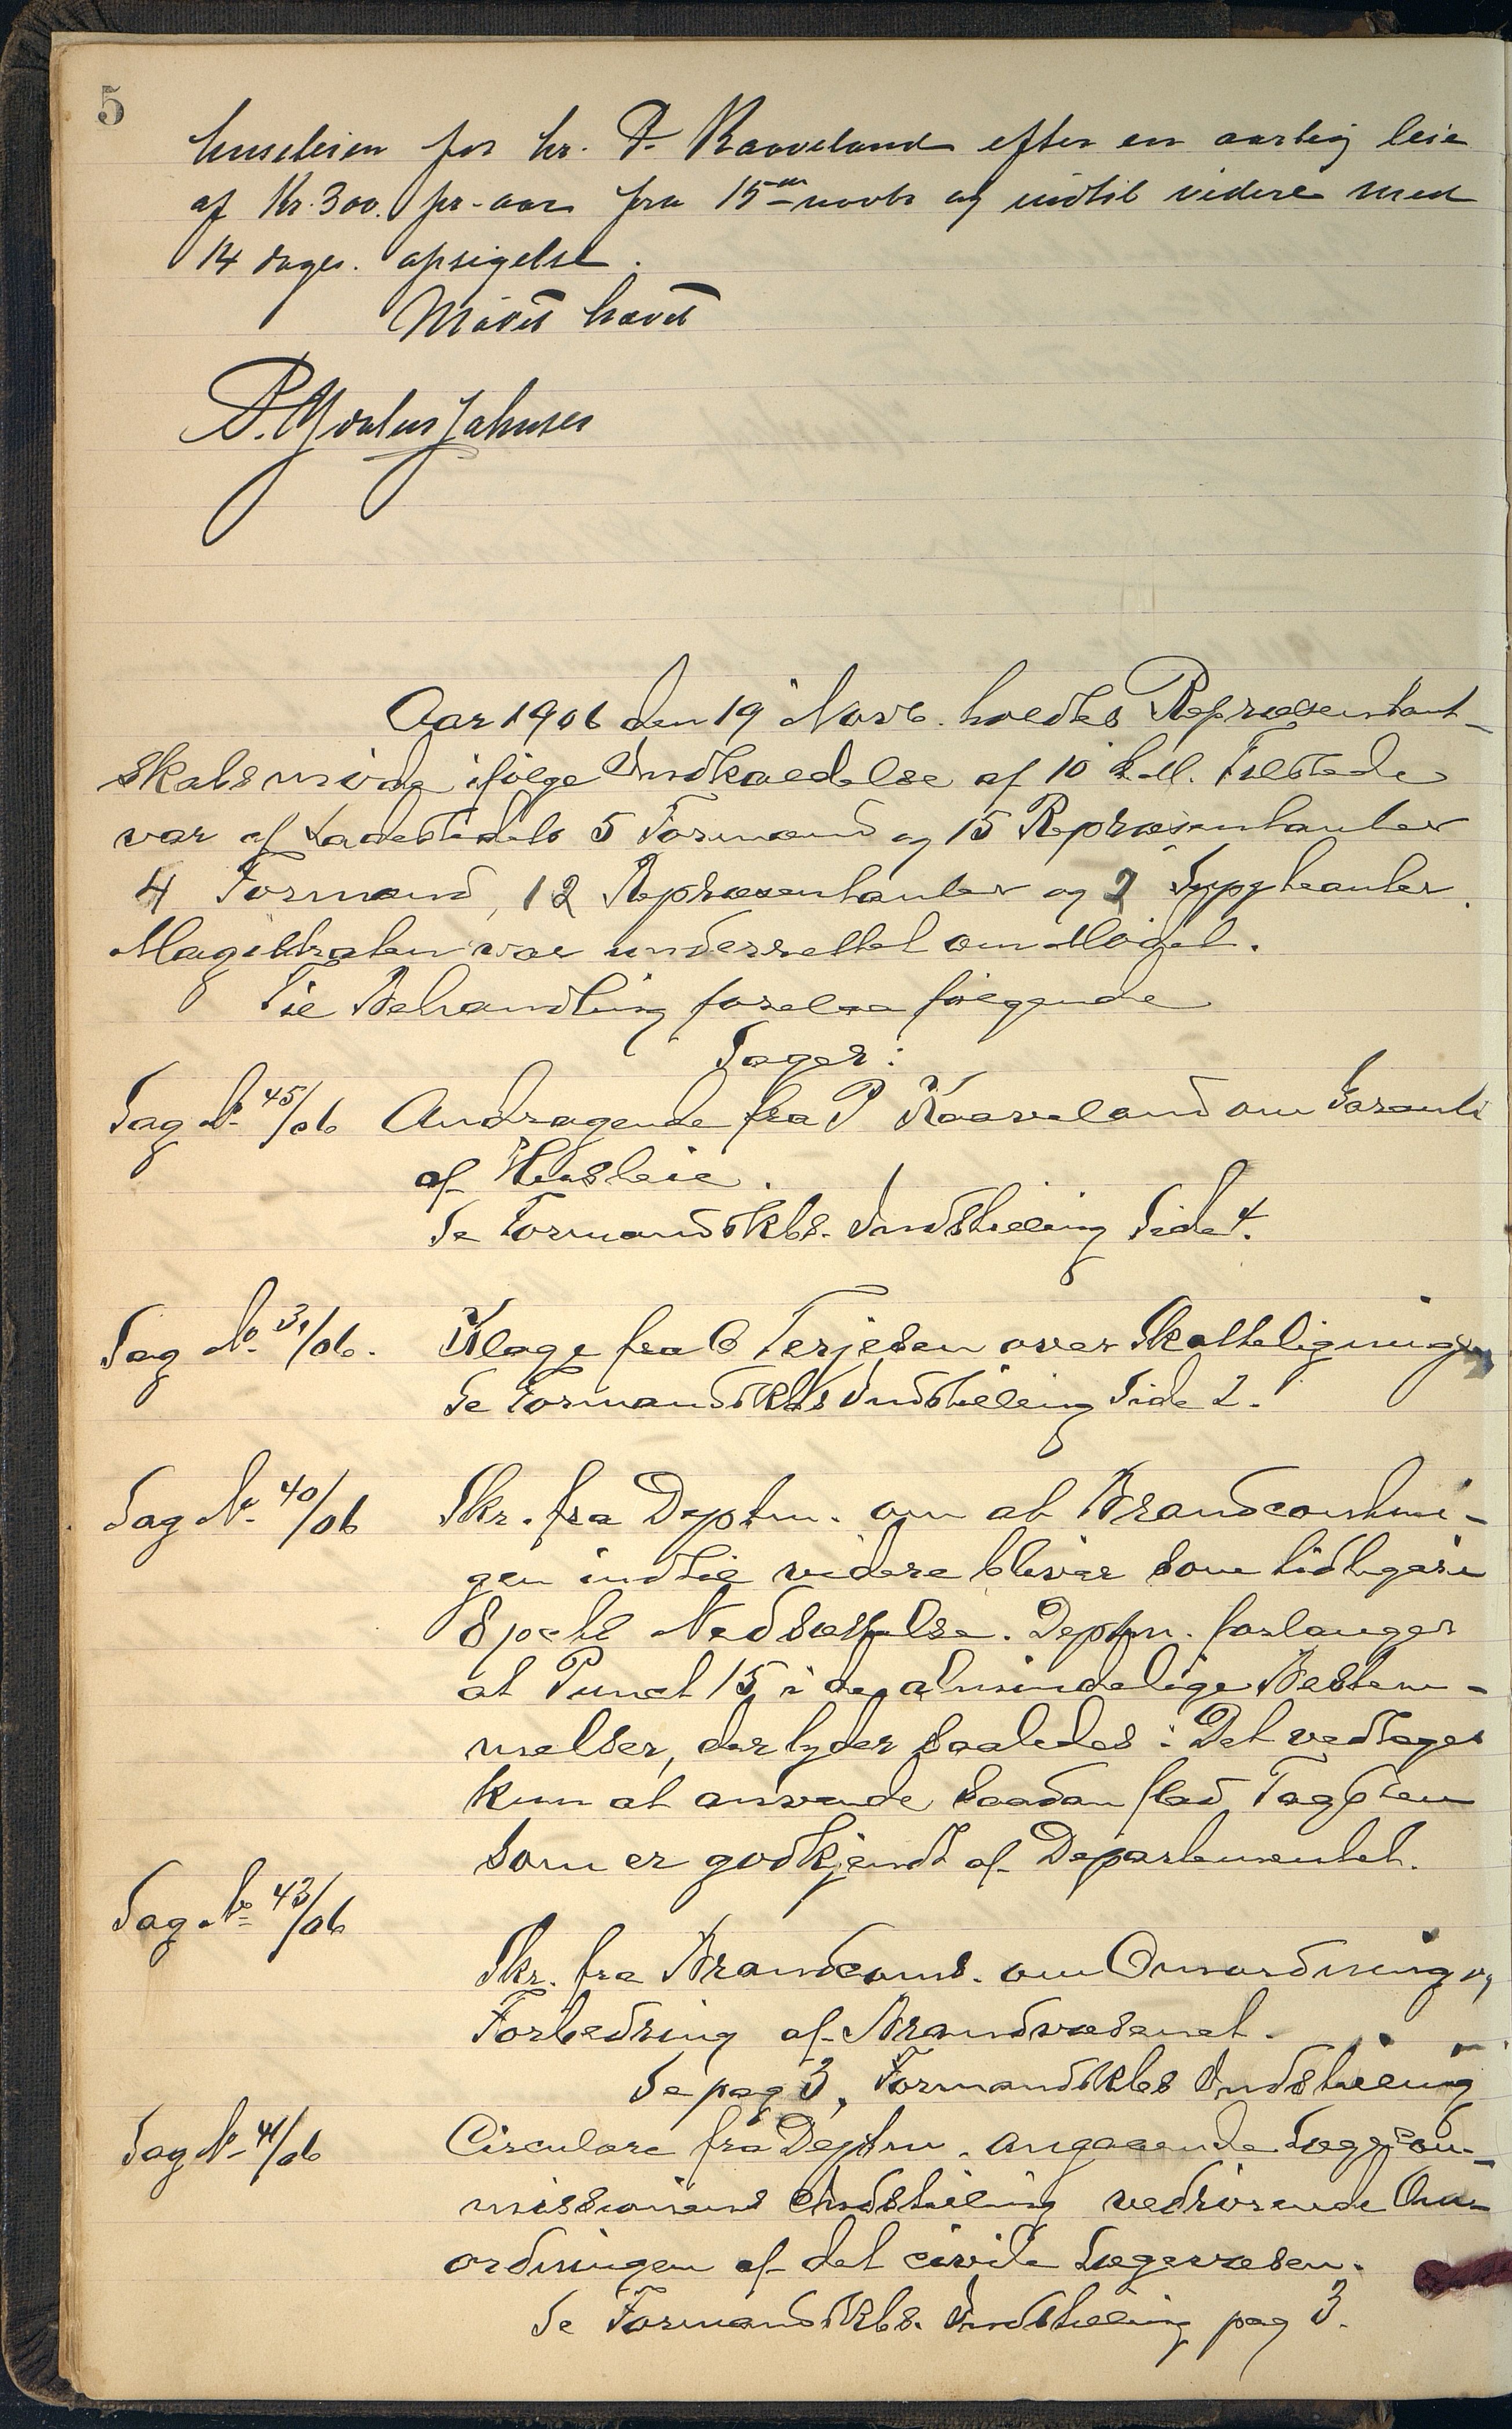 5
husleien for hr. P. Raaveland efter en aarlig leie
af Kr. 300. pr. aar fra 15de novbr og indtil videre med
14 dages. opsigelse.
Mødet hævet
P.
Aar 1906 den 19 Novb. holdtes Repræsentant-
skabsmøde ifølge Indkaldelse af 10 d.M. Tilstede
var af Ladestedets 5 Formænd og 15 Repræsentanter
4 Formænd, 12 Repræsentanter og 2 Suppleanter.
Magistraten var underrettet om Mødet.
Til Behandling forelaa følgende
Sager:
Sag No 45/06 Andragende fra P Raaveland om Garanti
af Husleie.
Se Formandskbs. Indstilling Side 4.
Sag No. 31/06. Klage fra O Terjesen over Skatteligningen
Se Formandskbs Indstilling Side 2.
Sag No. 40/06 Skr. fra Deptm. om at Brandcontin-
gen indtil videre bliver som tidligere
8 pcts Nedsættelse. Deptm. forlanger
at Punct 15 i de almindelige Bestem-
melser, der lyder saaledes: Det vedtages
kun at anvende saadan flad Tagsten
som er godkjendt af Departementet.
Sag No 43/06
Skr. fra Brandcoms. om Omordning og
Forbedring af Brandvæsenet.
Se pag 3, Formandskbs Indstilling
Sag No 41/06 Circulære fra Deptm. angaaende Lægecom-
missionens Indstilling vedrørende Om-
ordningen af det civile Lægevæsen.
Se Formandskbs. Indstilling pag 3.